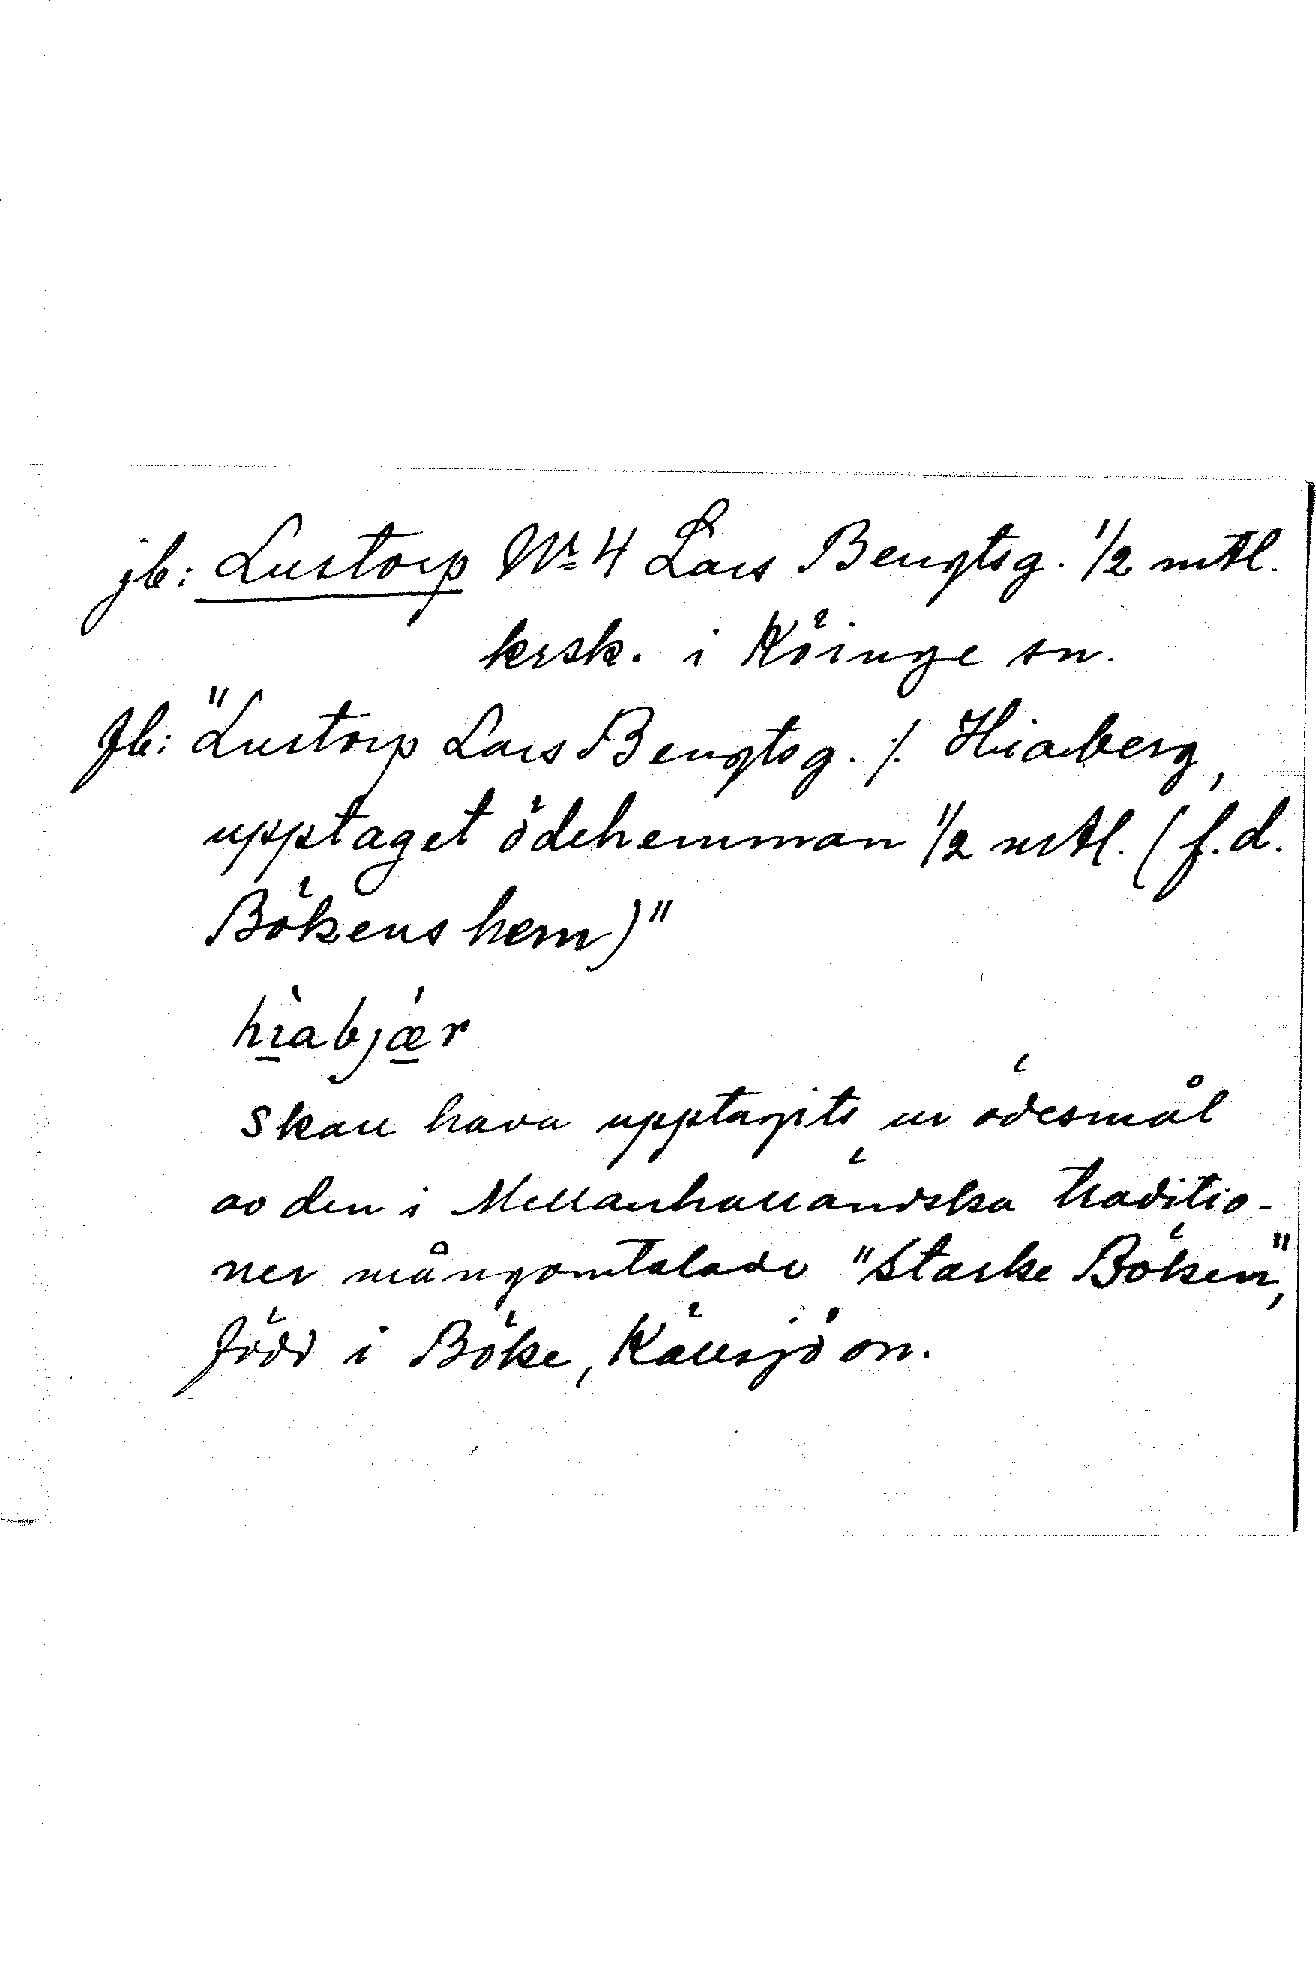 jb: Lustorp Nr 4 Lars Bengtsg. 1/2 mtl.
krsk. i Köinge sn.
Jb: "Lustorp Lars Bengtsg. /. Hiaberg,
upptaget ödehemman 1/2 mtl. (f.d.
Bökens hem)"
hìabjǽr
skall hava upptagits ur ödesmål
av den i Mellanhalländska traditio-
ner mångomtalade "Starke Böken",
född i Böke, Källsjö sn.